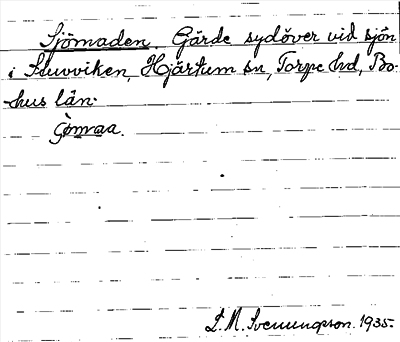 Sjömaden. Gärde sydöver vid sjön
i Sluvviken, Hjärtum sn, Torpe hd, Bo-
hus län.
L. M. Svenungsson. 1935.